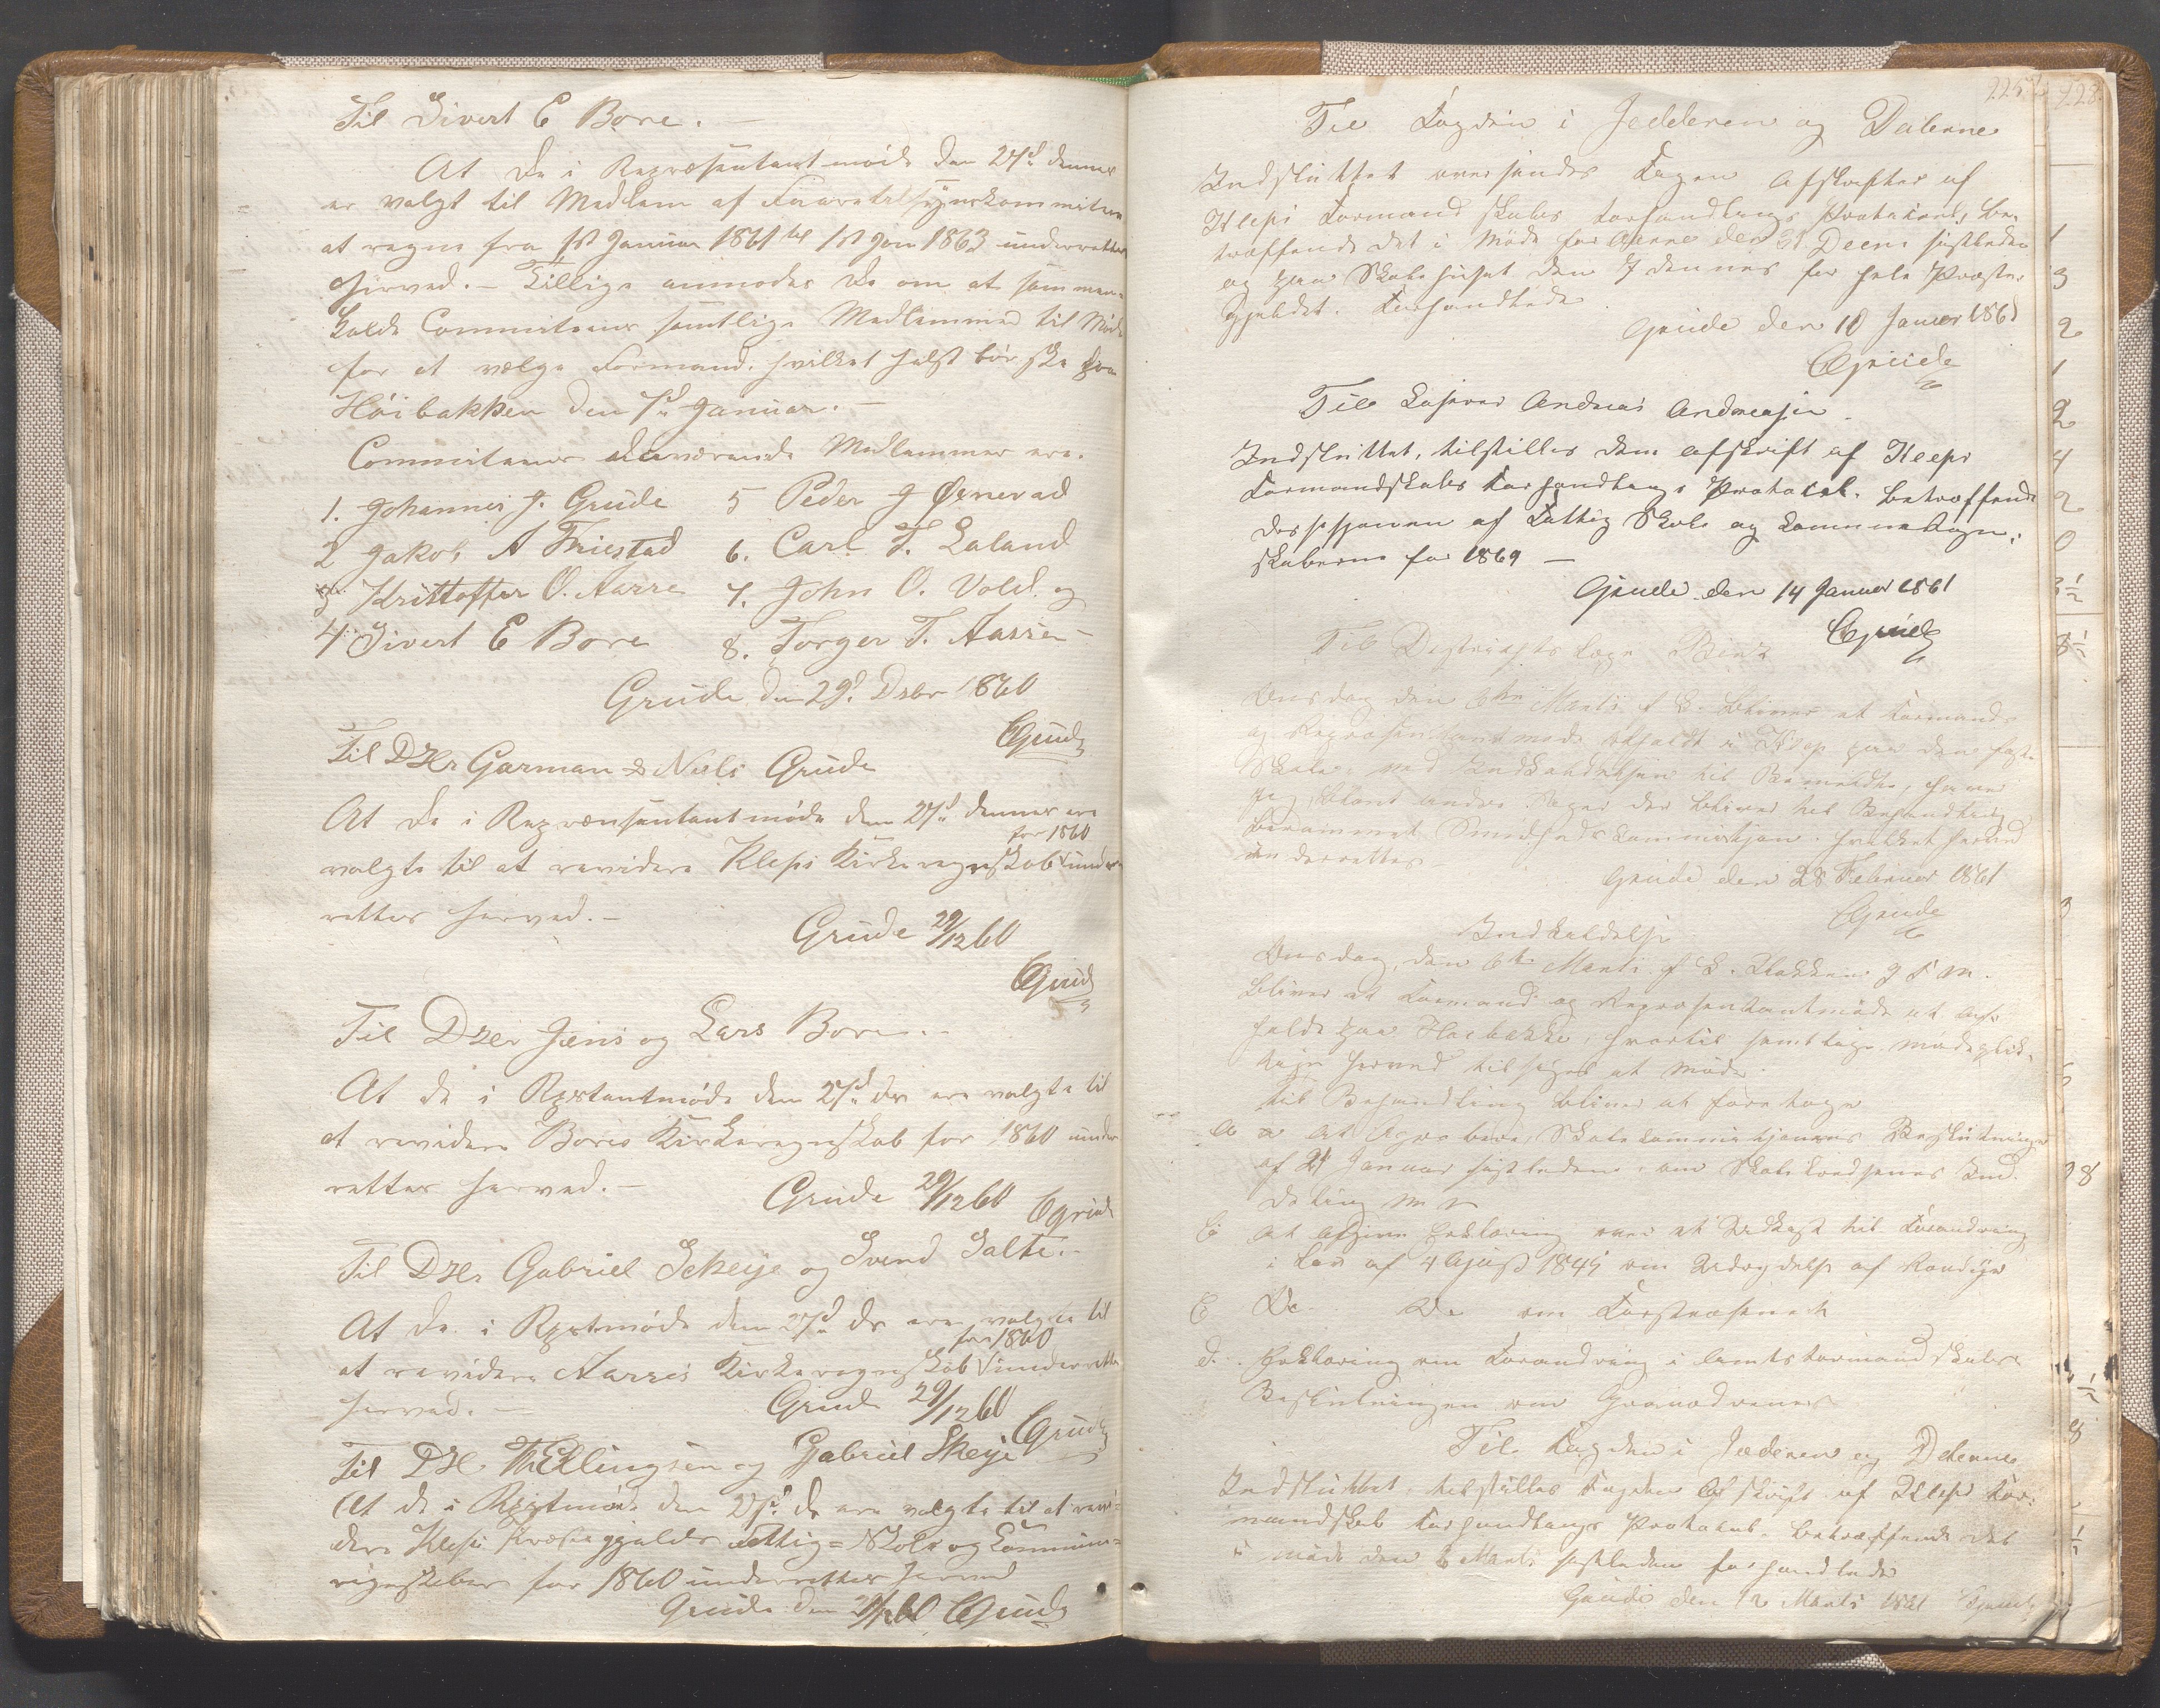 Til Sivert E Bore. —
At De i Repræsentantmøde den 27d dennes
er valgt til Medlem af Faaretilsynskommiteen
at regne fra 1st Januar 1861 til 1st Jan 1863 underrettes
herved. — Tillige anmodes De om at sammen-
kalde Commiteens samtlige Medlemmer til Møde
for at vælge Formand, hvilket helst bør ske paa
Høibakken den 7d Januar. —
Commiteens nuværende Medlemmer ere.
1. Johannes J. Grude
2 Jakob A Friestad
3 Kristoffer O. Aarre
4 Sivert E Bore
5 Peder J Øxnevad
6. Carl T. Laland
7. John O. Vold og
8. Torger T. Aarre —
Grude den 29d Dsbr 1860
CGrude
Til DHr Garman & Niels Grude
At De i Repræsentantmøde den 27d dennes ere
valgte til at revidere Kleps Kirkeregnskab for 1860 under-
rettes herved. —
Grude 29/12 60
CGrude
Til DHer Jens og Lars Bore. —
At de i Rpstantmøde den 27d ds ere valgte til
at revidere Bores Kirkeregnskab for 1860 under-
rettes herved. —
Grude 29/12 60 CGrude
Til DHr Gabriel Skeije og Svend Salte. —
At De i Rpstmøde den 27d ds ere valgte til
at revidere Aarres Kirkeregnskab for 1860 underrettes
herved. —
Grude 29/12 60
CGrude
Til DH. Th Ellingsen og Gabriel Skeije
At de i Rpstmøde den 27d ds ere valgte til at revi-
dere Kleps Præstegjelds Fattig = Skole og Commune =
regnskaber for 1860 underrettes herved
Grude den 29/12 60 CGrude
Til Fogden i Jedderen og Dalerne
Indsluttet oversendes Fogen Afskrifter af
Kleps Formandskabs Forhandlings Protocol, be-
træffende det i Møde for Aarre den 31 Decem sistleden
og paa Skolehuset den 7 dennes for hele Præste-
gjeldet. Forhandlede
Grude den 10 Januar 1861
CGrude
Til Kaserer Andreas Andreasen
Indsluttet, tilstilles dem afskrift af Kleps
Formandskabs Forhandlings Protocol. betræffende
af Fattig Skole og Kommuneregn-
skaberne for 1861 —
Grude den 14 Januar 1861
CGrude
Til Distriktslæge
Onsdag den 6te Marts f K. bliver et Formands
og Repræsentantmøde afholdt i Klep paa den faste
Skole, ved Indkaldelsen til Bemeldte, haver
jeg, blant andre Sager der bliver til Behandling
berammet Sundhedskommisjon. hvilket herved
underrettes
Grude den 28 Februar 1861
CGrude
Indkaldelse
Onsdag, den 6te Marts f K. Klokken 9 F M.
bliver et Formand og Repræsentantmøde at af-
holde paa Høibakke, hvortil samtlige mødeplik-
tige herved tilsiges at møde.
Til Behandling bliver at foretage
a at Skolekommissjonens Beslutninger
af 21 Januar sistleden, om Skolekredsenes Ind-
deling m v
b at afgive Erklæring over et Udkast til Forandring
i Lov af 4 August 1845 om Udrydelse af Rovdyr
c Do. Do om Forstvæsenet
d. Erklæring om Forandring i Amtsformandskabets
Beslutningen om
Til Fogden i Jæderen og Dalerne
Indsluttet, tilstilles Fogden Afskrift af Kleps For-
mandskab Forhandlings Protokol. betræffende det
i møde den 6 Marts sistleden forhandlede
Grude den 12 Marts 1861 CGrude